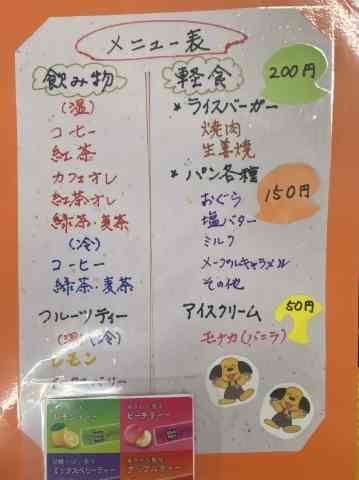 メニュー表
飲み物
(温)
コーヒー
紅茶
カフェオレ
紅茶オレ
緑茶・麦茶
(冷)
コーヒー
緑茶・麦茶
フルーツティー
(温)(冷)
レモン
軽食
200円
*ライスバーガー
焼肉
生姜焼
*パン各種
150円
おぐら
塩バター
ミルク
メープルキャラメル
その他
アイスクリーム
50円
モナカ(バニラ)
レモンティー
ピーチティー
ミックスベリーティー
アップルティー